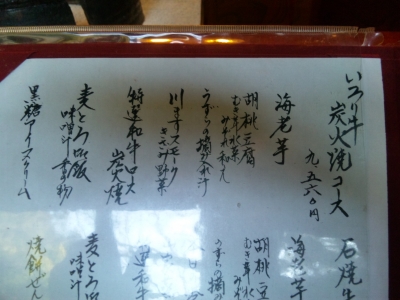 いろり牛
炭火焼コース
九、五六〇円
海老芋
胡桃豆腐
むき茸水菜
みぞれ和え
うずらの摘み入れ汁
川ますスモーク
きざみ野菜
特選和牛ロース
炭火焼
麦とろ御飯
味噌汁 香物
黒糖アイスクリーム
石焼
海老芋
胡桃豆
むき茸水
みぞれ
うずらの摘
麦とろ御
味噌汁
焼餅ぜん